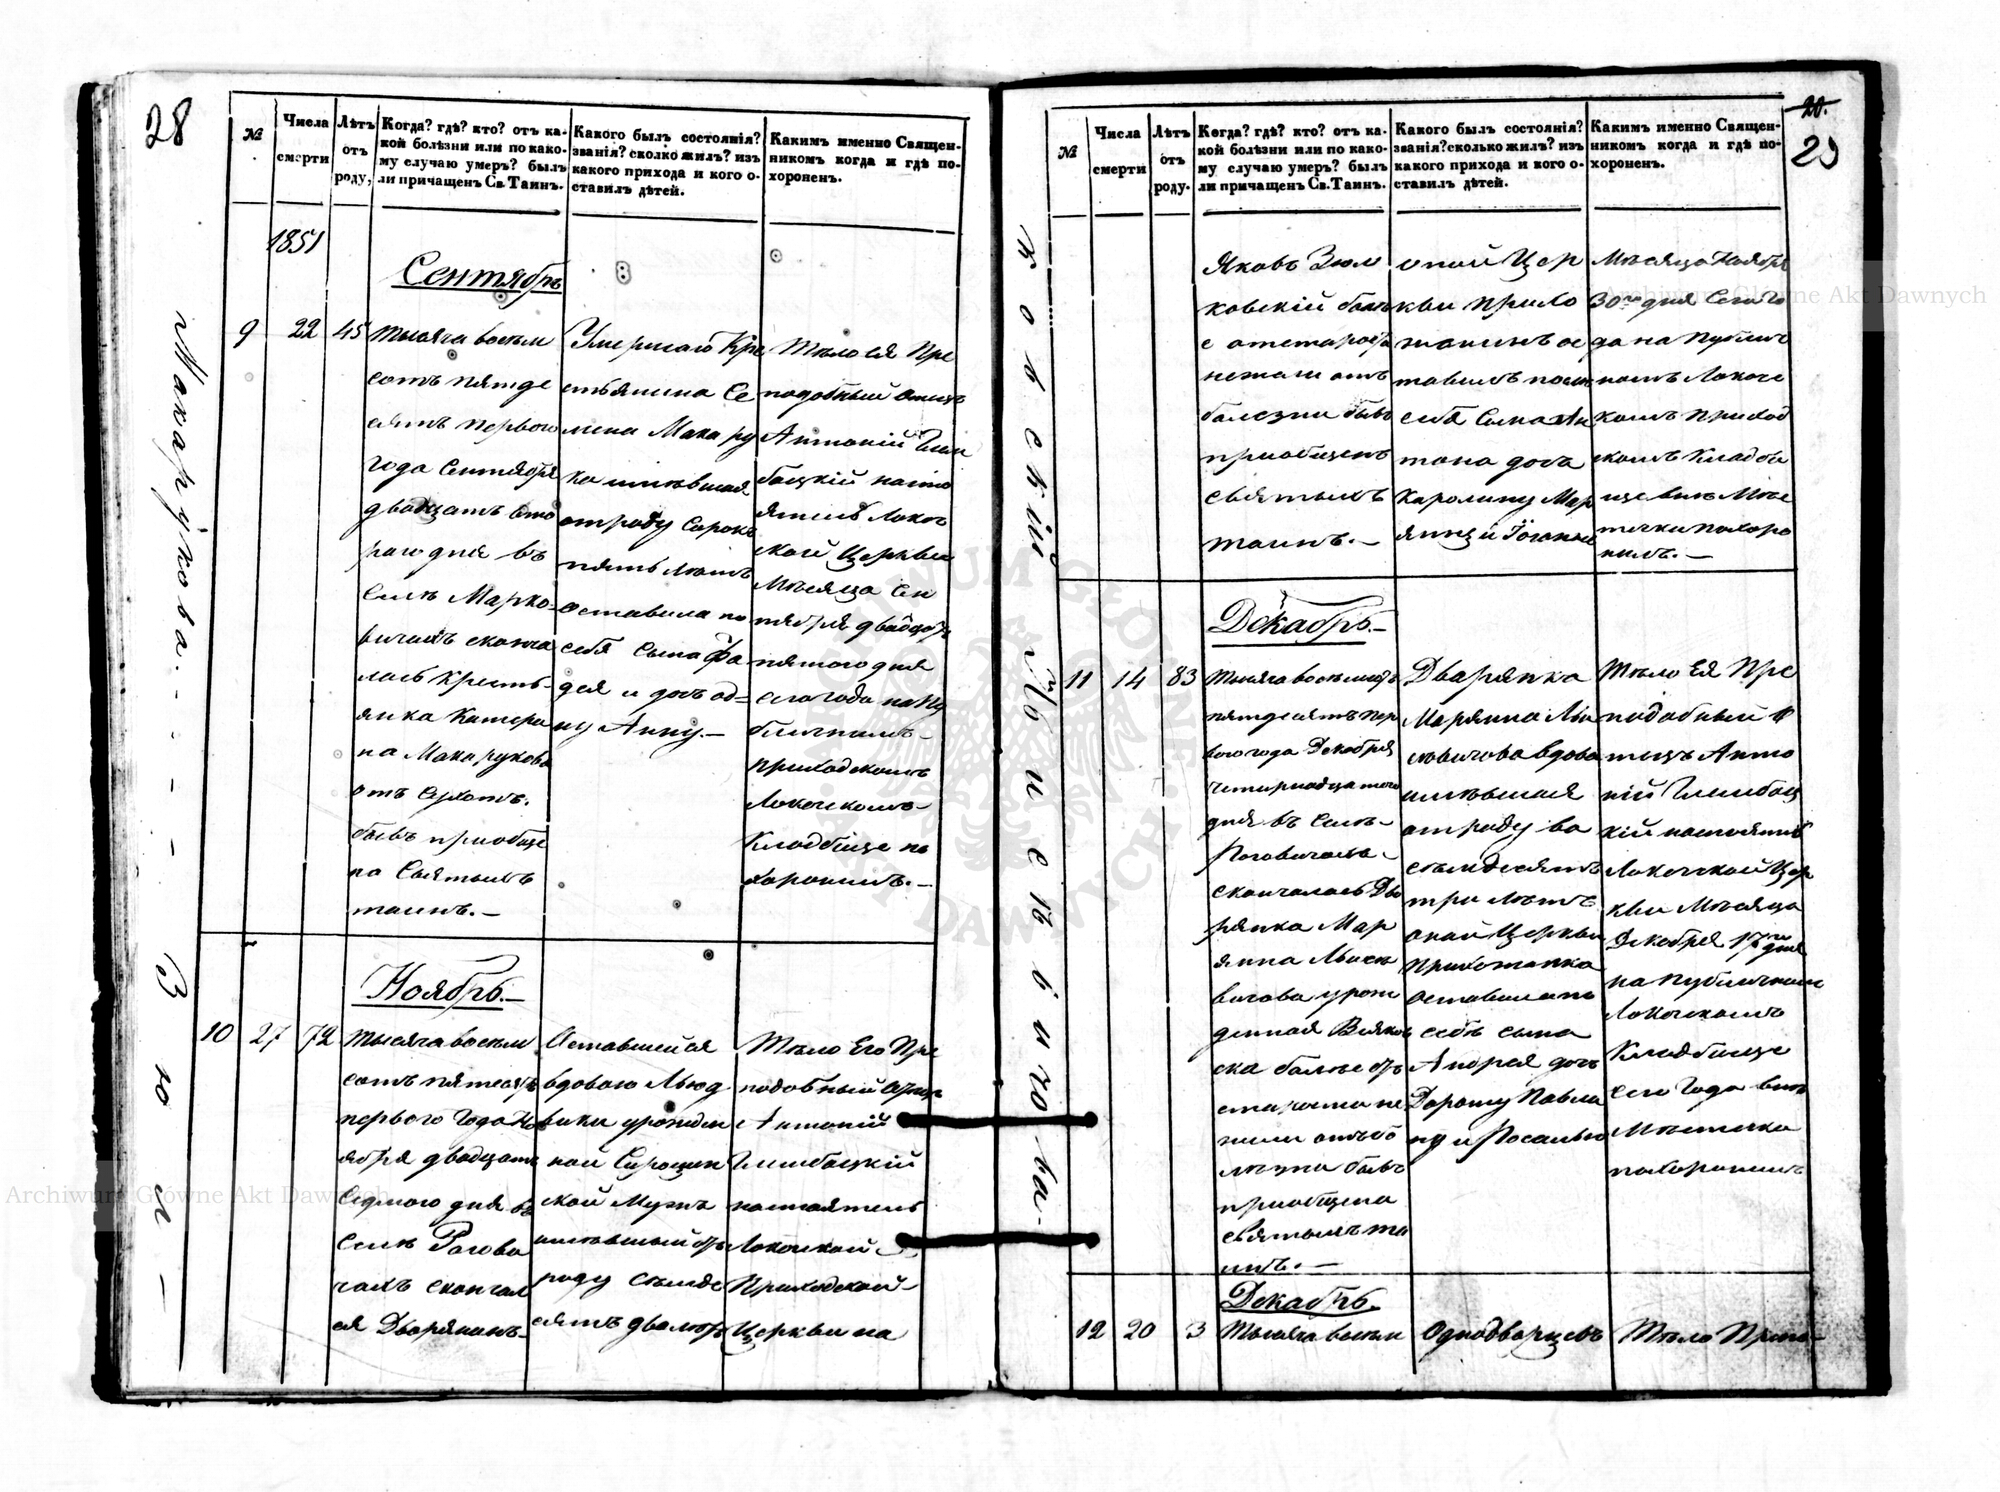 28
№
Числа
смерти
Лѣтъ
отъ
роду,
Когда? гдѣ? кто? отъ ка-
кой болѣзни или по како-
му случаю умеръ? былъ
ли причащенъ Св. Таинъ.
Какого былъ состоянія?
званія? сколко жилъ? изъ
какого прихода и кого о-
ставилъ дѣтей.
Какимъ именно Священ-
никомъ когда и гдѣ по-
хороненъ.
1851
Сентябрь
9
22
45
Тысяча восемь
сотъ пятьде
сятъ перваго
года Сентября
двадцать вто
раго дня въ
селѣ Марко-
вичахъ сконча
лась кресть-
янка Катери
на Макарукова
отъ сухотъ.
бывъ приобще
на Святыхъ
таинъ.—
Умершаго Кре
стьянина Се
мена Макару
ка имѣвшая
отроду Сорокъ
пять лѣтъ
оставила по
себѣ сына Фа
дея и дочь од-
ну Анну.—
Тѣло ея Пре
подобный Отецъ
Антоній
настo
ятель Локач
ской Церкви
Мѣсяца Сен
тября двадцать
пятого дня
сего года на Пу
бличномъ
приходскомъ
Локачскомъ
Кладбище по
хоронилъ.—
Макарукова.
Зюл
Ноябрь.—
10
27
72
Тысяча восемь
сотъ пятдесятъ
перваго года Но
ября двадцать
седмого дня въ
селѣ Рогови
чахъ скончал
ся Дворянинъ
Оставшейся
вдовою Люд
вики урожден
ной
ской Мужъ
имѣвшый отъ
роду семьде
сятъ два лѣтъ
Тѣло Его Пре
подобный Отецъ
Антоній
настоятель
Локачской
Приходской
Церкви на
20.
29
№
Числа
смерти
Лѣтъ
отъ
роду.
Когда? гдѣ? кто? отъ ка-
кой болѣзни или по како-
му случаю умеръ? былъ
ли причащенъ Св. Таинъ.
Какого былъ состоянія?
званія? сколько жилъ? изъ
какого прихода и кого о-
ставилъ дѣтей.
Какимъ именно Священ-
никомъ когда и гдѣ по-
хороненъ.
Яковъ Зюл
ковскій болѣе
с отстарости
нежели отъ
болезни бывъ
приобщенъ
святыхъ
таинъ.—
оной Цер
кви прихо
жанинъ ос
тавилъ после
себѣ сына Ан
тона дочь
Каролину Мар
янну и
Мѣсяца Ноября
30го дня Сего го
да на Публич
номъ Локачс
комъ Приход
скомъ Кладби
ще
течки похоро
нилъ.—
ковскій
Декабрь.—
11
14
83
Тысяча восемсотъ
пятдесятъ пер
вого года Декабря
четырнадцатого
дня въ селѣ
Роговичахъ
скончалась Дво
рянка Мар
янна
вичова урож
денная
ска болѣе отъ
старости не
жели отъ бо
лезни бывъ
приобщена
святыхъ та
инъ.—
Дворянка
Марянна
вдова
имѣвшая
отроду во
семдесятъ
три лѣтъ
оной Церкви
прихожанка
оставила по
себѣ сына
Андрея дочь
Дороту Павли
ну и Росалью
Тѣло Ея Пре
подобный О
тецъ Анто
ній
настоятель
Локачской Цер
кви Мѣсяца
Декабря 17го дня
на публичномъ
Локачскомъ
Кладбище
сего года
Мѣстечка
похоронилъ
Декабрь.
12
20
3
Тысяча восемь
Однодворцевъ
Тѣло
Archiwum Główne Akt Dawnych
Archiwum Główne Akt Dawnych
ARCHIWUM GŁÓWNE AKT DAWNYCH